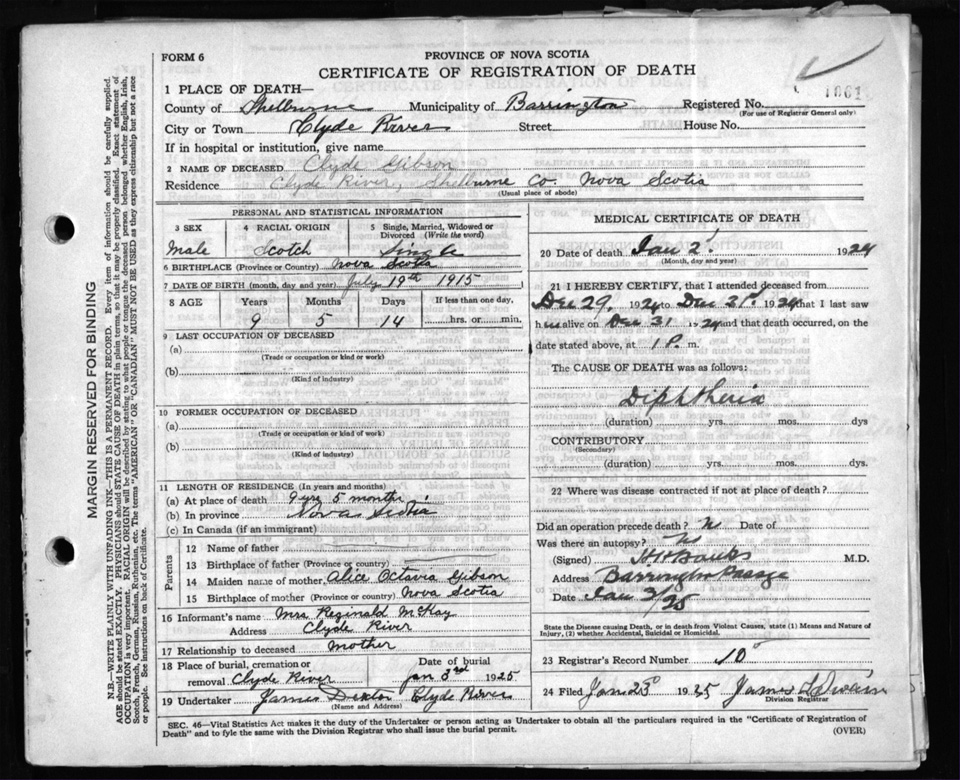 FORM 6
PROVINCE OF NOVA SCOTIA
CERTIFICATE OF REGISTRATION OF DEATH
1861
1 PLACE OF DEATH—
County of Shelburne Municipality of Barrington Registered No.
(For use of Registrar General only)
City or Town Clyde River Street House No.
If in hospital or institution, give name
2 NAME OF DECEASED Clyde Gibson
Residence Clyde River, Shelburne Co. Nova Scotia
(Usual place of abode)
PERSONAL AND STATISTICAL INFORMATION
3 SEX 4 RACIAL ORIGIN 5 Single, Married, Widowed or Divorced (Write the word)
Male Scotch Single
6 BIRTHPLACE (Province or Country) Nova Scotia
7 DATE OF BIRTH (month, day and year) July 19th 1915
8 AGE Years Months Days If less than one day,
9 5 14 hrs. or min.
9 LAST OCCUPATION OF DECEASED
(a)
(Trade or occupation or kind of work)
(b)
(Kind of industry)
10 FORMER OCCUPATION OF DECEASED
(a)
(Trade or occupation or kind of work)
(b)
(Kind of industry)
11 LENGTH OF RESIDENCE (In years and months)
(a) At place of death 9 yrs 5 months
(b) In province Nova Scotia
(c) In Canada (if an immigrant)
Parents
12 Name of father
13 Birthplace of father (Province or country)
14 Maiden name of mother Alice Octavia Gibson
15 Birthplace of mother (Province or country) Nova Scotia
16 Informant's name Mrs Reginald McKay
Address Clyde River
17 Relationship to deceased mother
18 Place of burial, cremation or removal Clyde River
Date of burial Jan 3rd 1925
19 Undertaker James Dexter Clyde River
(Name and Address)
MEDICAL CERTIFICATE OF DEATH
20 Date of death Jan 2 1924
(Month, day and year)
21 I HEREBY CERTIFY, that I attended deceased from
Dec 29, 1924 to Dec 31st 1924 that I last saw
him alive on Dec 31 1924 and that death occurred, on the
date stated above, at 1 P. m.
The CAUSE OF DEATH was as follows:
Diphtheria
(duration) yrs. mos. dys
CONTRIBUTORY
(Secondary)
(duration) yrs. mos. dys.
22 Where was disease contracted if not at place of death?
Did an operation precede death? No Date of
Was there an autopsy? No
(Signed) Banks M.D.
Address Barrington Passage
Date Jan 2/25
State the Disease causing Death, or in death from Violent Causes, state (1) Means and Nature of
Injury, (2) whether Accidental, Suicidal or Homicidal.
23 Registrar's Record Number 10
24 Filed Jan 25 1925 James
Division Registrar
SEC. 46—Vital Statistics Act makes it the duty of the Undertaker or person acting as Undertaker to obtain all the particulars required in the "Certificate of Registration of
Death" and to fyle the same with the Division Registrar who shall issue the burial permit.
(OVER)
MARGIN RESERVED FOR BINDING
N.B.—WRITE PLAINLY WITH UNFADING INK—THIS IS A PERMANENT RECORD. Every item of information should be carefully supplied.
AGE should be stated EXACTLY. PHYSICIANS should STATE CAUSE OF DEATH in plain terms, so that it may be properly classified. Exact statement of
OCCUPATION is very important. RACIAL ORIGIN will be described by stating to what people or tongue the deceased person belonged whether English, Irish,
Scotch, French, German, Russian, Ruthenian, etc. The terms "AMERICAN" or "CANADIAN" MUST NOT BE USED as they express citizenship but not a race
or people. See instructions on back of Certificate.